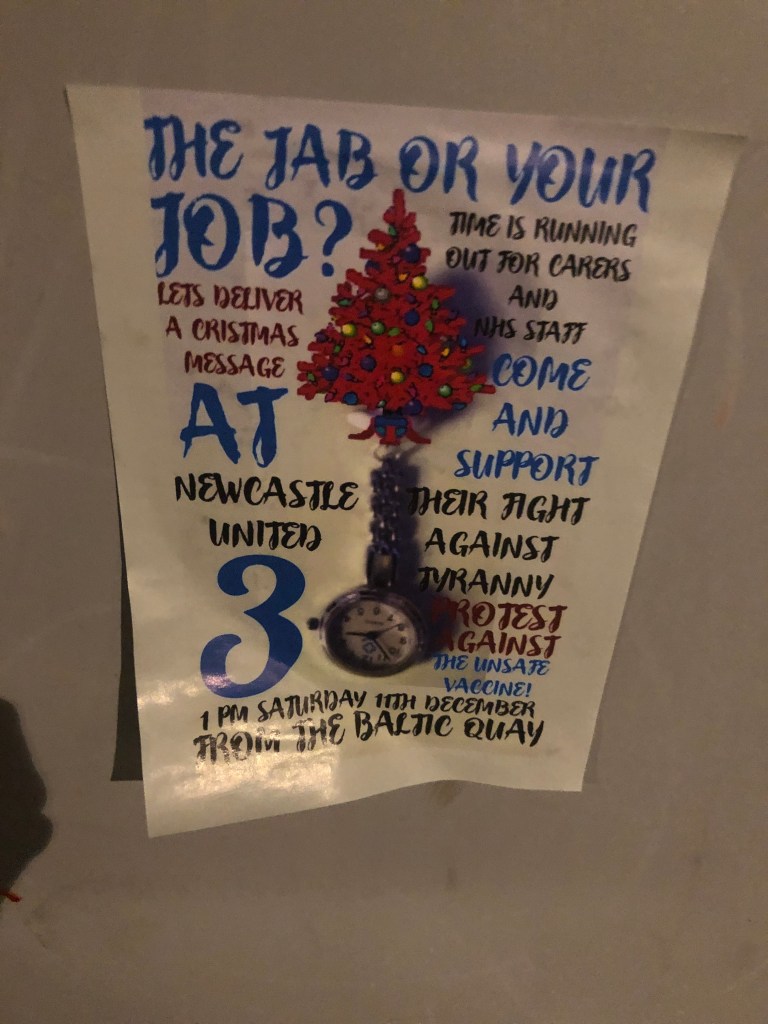 THE JAB OR YOUR
JOB?
LETS DELIVER
A CRISTMAS
MESSAGE
AT
NEWCASTLE
UNITED
3
TIME IS RUNNING
OUT FOR CARERS
AND
NHS STAFF
COME
AND
SUPPORT
THEIR FIGHT
AGAINST
TYRANNY
PROTEST
AGAINST
THE UNSAFE
VACCINE!
1 PM SATURDAY 11TH DECEMBER
FROM THE BALTIC QUAY